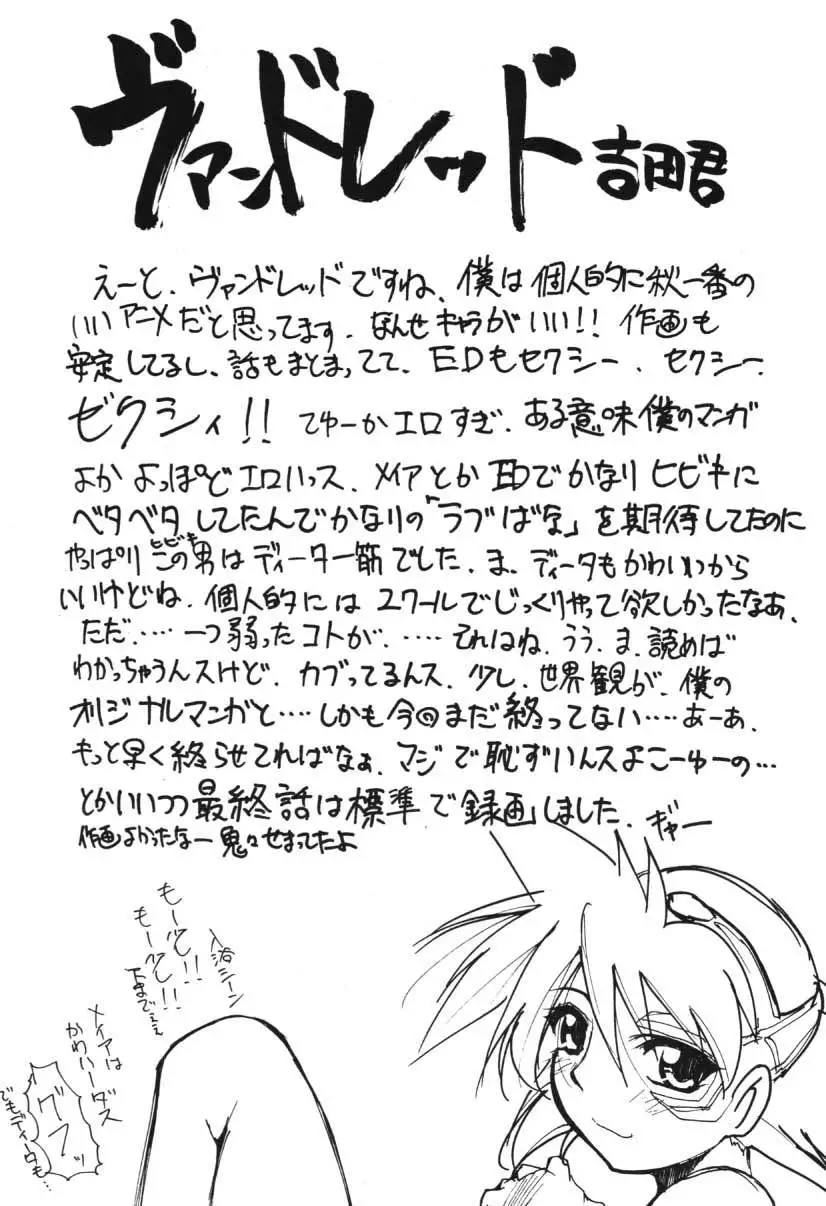 ヴァンドレッド 吉田君
えーと、ヴァンドレッドですね、僕は個人的に秋一番の
いいアニメだと思ってます。なんせキャラがいい!! 作画も
安定してるし、話もまとまってて、EDもセクシー、セクシー
ゼクシィ!! てゆーかエロすぎ、ある意味僕のマンガ
よかよっぽどエロいっス、メイアとかEDでかなりヒビキに
ベタベタしてたんでかなりの「ラブばな」を期待してたのに
やっぱりこの男はディータ一筋でした。ま、ディータもかわいいから
ヒビキ
いいけどね、個人的には2クールでじっくりやって欲しかったなあ、
ただ……一つ弱ったコトが、……それはね、うぅ、ま、読めば
わかっちゃうんスけど、カブってるんス、少し、世界観が、僕の
オリジナルマンガと……しかも今回まだ終ってない……あーあ、
もっと早く終らせてればなぁ、マジで恥ずいんスよこーゆーの…
とかいいつつ最終話は標準で録画しました、ギャー
作画よかったなー 鬼々せまってたよ
入浴シーン
もーちょし!!
もーちょし!!
下までぇぇ
メイアは
かわいーダス
グフッ
でもディータも…